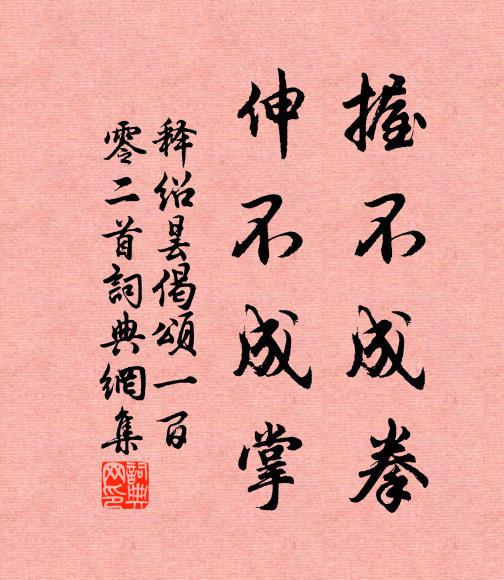 握不成拳
伸不成掌
释绍昙偈颂一百
零二首詞典網集
詞典網印